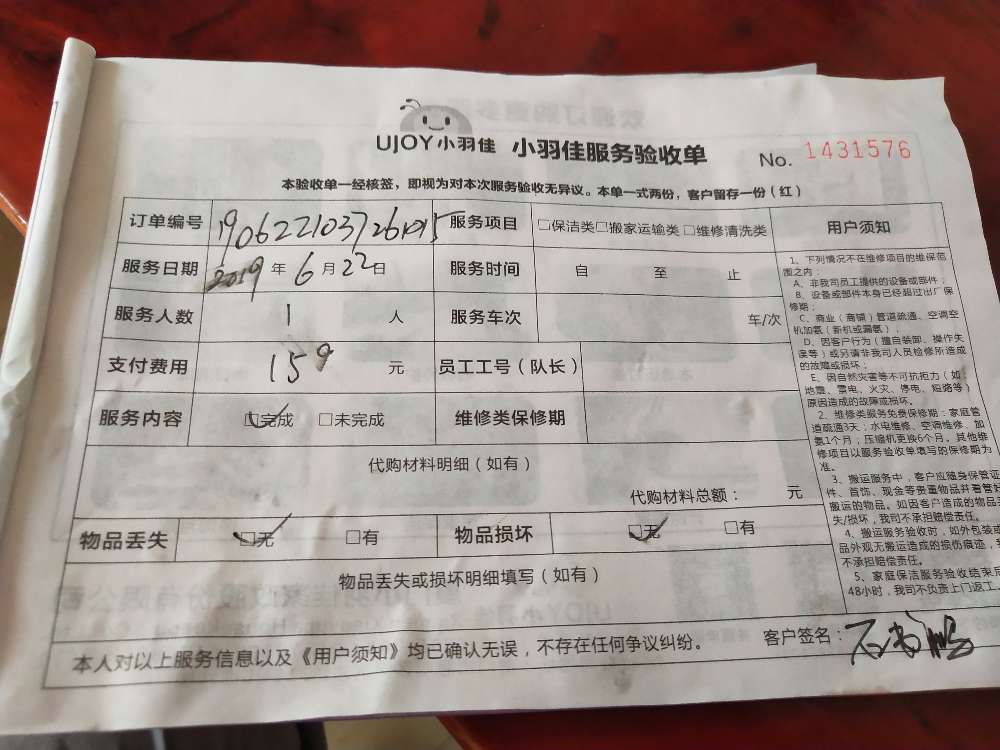 UJOY小羽佳 小羽佳服务验收单 No. 1431576
本验收单一经核签，即视为对本次服务验收无异议。本单一式两份，客户留存一份（红）
订单编号 服务项目 □保洁类□搬家运输类□维修清洗类
服务日期 2019 年 6 月 22 日 服务时间 自 至 止
服务人数 1 人 服务车次 车/次
支付费用 159 元 员工工号（队长）
服务内容 □完成 □未完成 维修类保修期
代购材料明细（如有）
代购材料总额： 元
物品丢失 □无 □有 物品损坏 □无 □有
物品丢失或损坏明细填写（如有）
本人对以上服务信息以及《用户须知》均已确认无误，不存在任何争议纠纷。 客户签名：
用户须知
1、下列情况不在维修项目的维保范
围之内：
A、非我司员工提供的设备或部件；
B、设备或部件本身已经超过出厂保
修期；
C、商业（商铺）管道疏通、空调空
机加氨（新机或漏氨）；
D、因客户行为（擅自装卸、操作失
误等）或另请非我司人员检修所造成
的故障或损坏；
E、因自然灾害等不可抗拒力（如：
地震、雷电、火灾、停电、短路等）
原因造成的故障或损坏。
2、维修类服务免费保修期：家庭管
道疏通3天；水电维修、空调维修、加
氨1个月；压缩机更换6个月。其他维
修项目以服务验收单填写的保修期为
准。
3、搬运服务中，客户应随身保管证
件、首饰、现金等贵重物品并看管好
搬运的物品。如因客户造成的物品丢
失/损坏，我司不承担赔偿责任。
4、搬运服务验收时，如外包装或
品外观无搬运造成的损伤痕迹，我
不承担赔偿责任。
5、家庭保洁服务验收结束后
48小时，我司不负责上门返工。